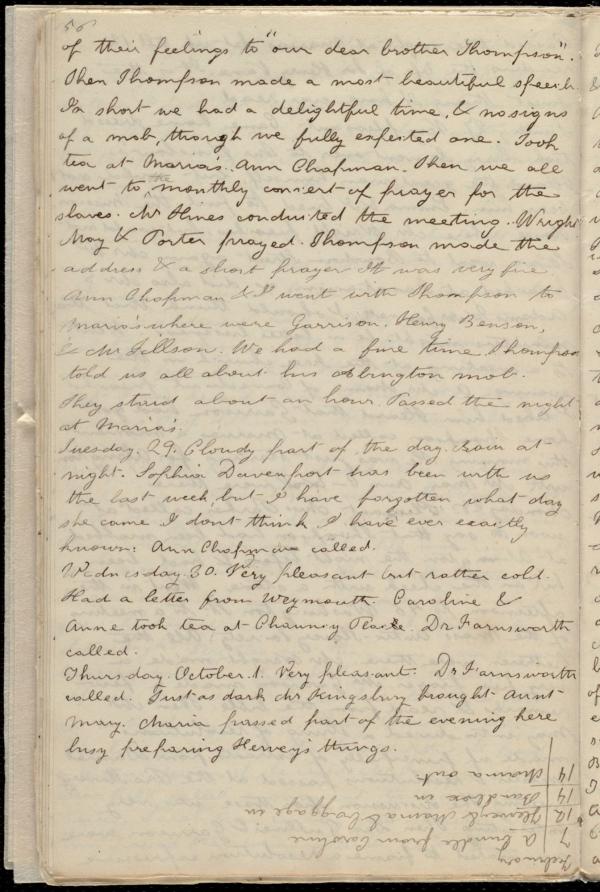 56
of their feelings to "our dear brother Thompson".
Then Thompson made a most beautiful speech.
In short we had a delightful time, & no signs
of a mob, though we fully expected one. Took
tea at Maria's. Ann Chapman. Then we all
went to the monthly concert of prayer for the
slaves. Mr Hines conducted the meeting. Wright
May & Porter prayed. Thompson made the
address & a short prayer It was very fine
Ann Chapman & I went with Thompson to
Maria's where were Garrison. Henry Benson,
& Mr Tellson. We had a fine time. Thompson
told us all about his Abington mob.
They staid about an hour. Passed the night
at Maria's.
Tuesday. 29. Cloudy part of the day. Rain at
night. Sophia Davenport has been with us
the last week, but I have forgotten what day
she came I dont think I have ever exactly
known. Ann Chapman called.
Wednesday. 30. Very pleasant but rather cold.
Had a letter from Weymouth. Caroline &
Anne took tea at Chauncy Place. Dr Farnsworth
called.
Thursday. October. 1. Very pleasant. Dr Farnsworth
called. Just as dark Mr Kingsbury brought Aunt
Mary. Maria passed part of the evening here
busy preparing Hervey's things.
February
7 A bundle from Caroline
12 Hervey & Mama's baggage in
14 Bandbox in
14 Mama out